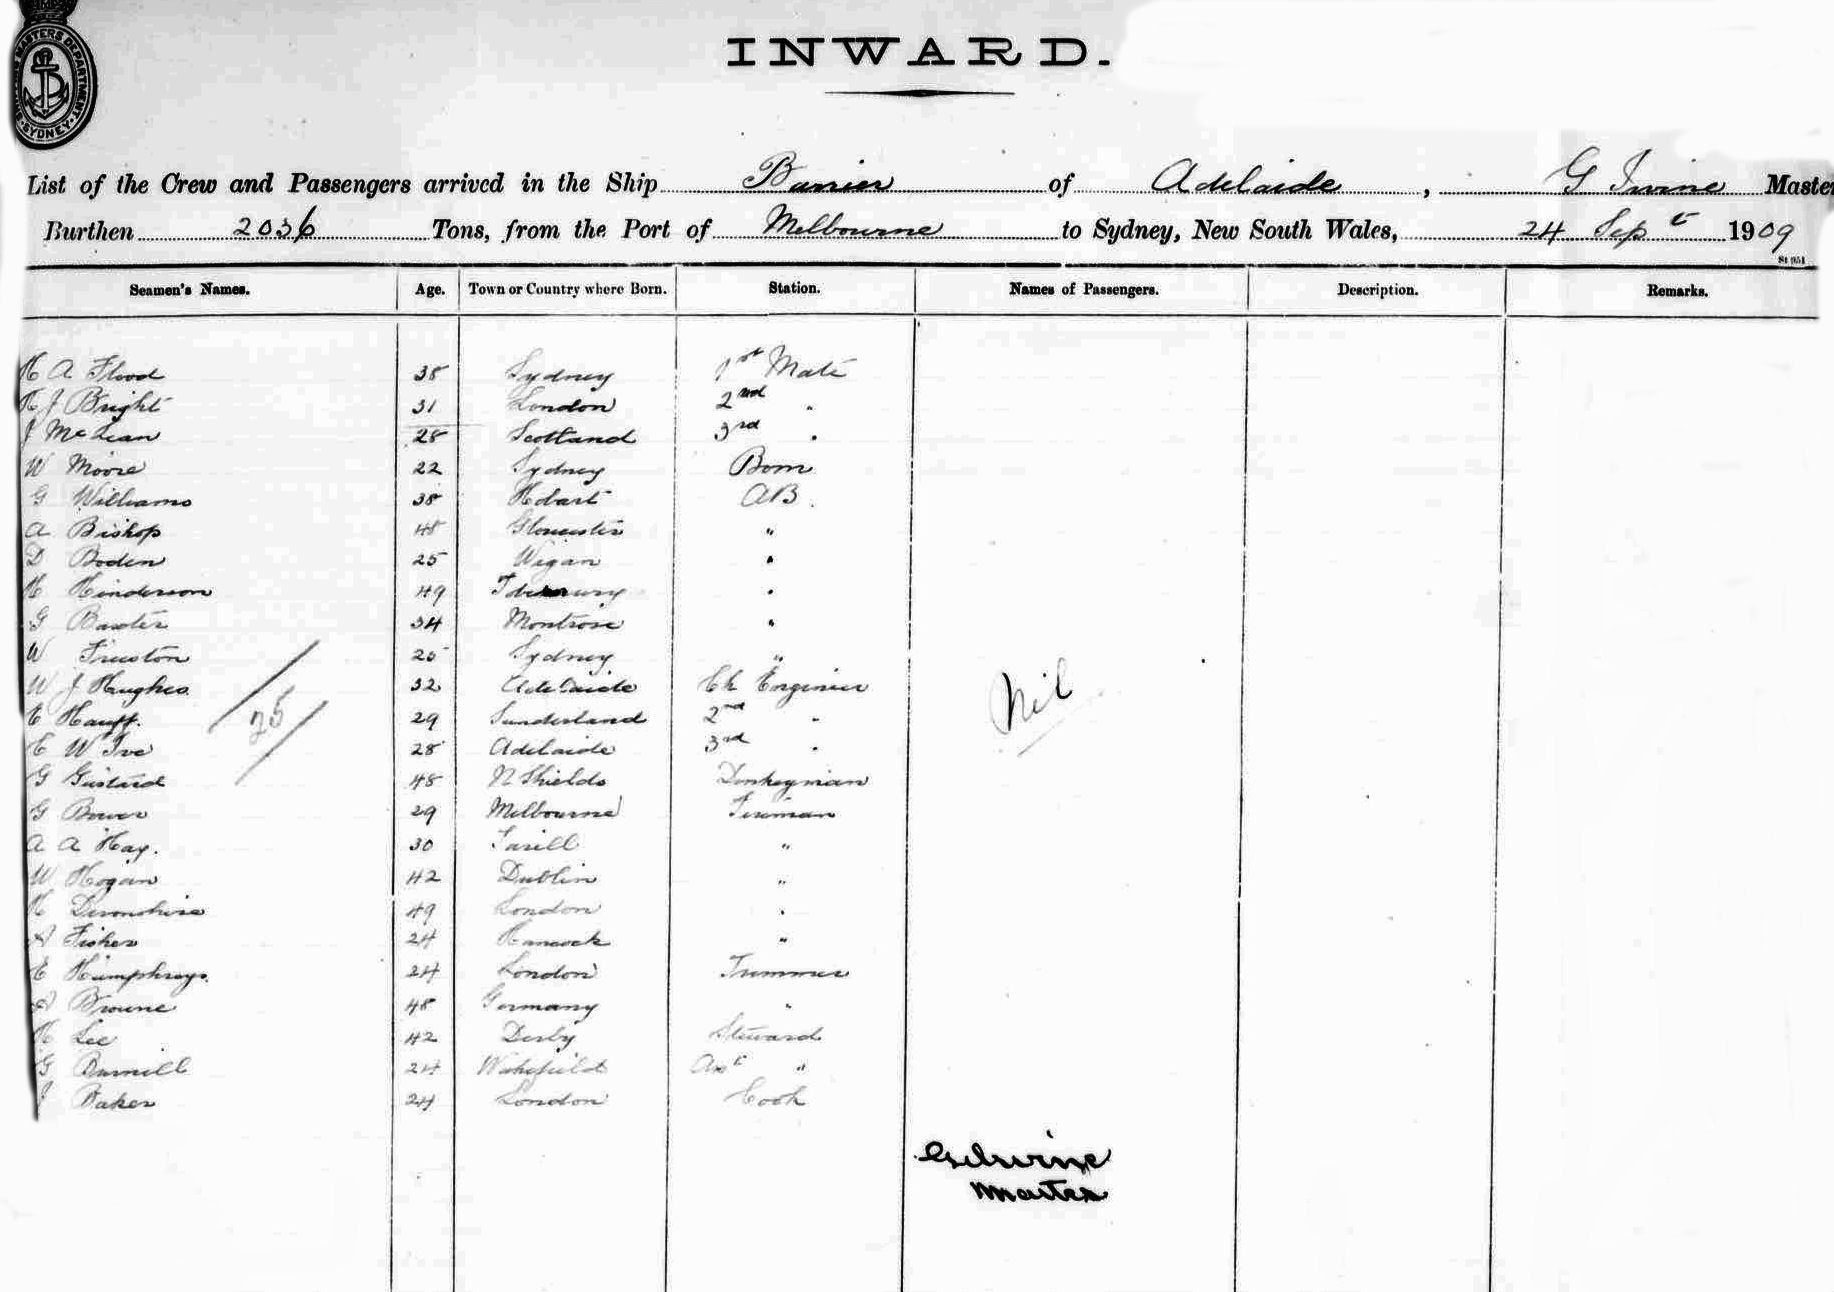 INWARD.
MASTERS DEPARTMENT
SYDNEY
List of the Crew and Passengers arrived in the Ship Barrier of Adelaide, G Irvine Master
Burthen 2036 Tons, from the Port of Melbourne to Sydney, New South Wales, 24 Sept 1909
Seamen's Names. Age. Town or Country where Born. Station. Names of Passengers. Description. Remarks.
H A Flood 38 Sydney 1st Mate
H J Bright 31 London 2nd "
J McLean 28 Scotland 3rd "
W Moore 22 Sydney Bosn
G Williams 38 Hobart AB
A Bishop 48 Gloucester "
D Boden 25 Wigan "
H Henderson 49 "
G Baxter 34 Montrose "
W Freeston 25 Sydney "
W J Hughes 32 Adelaide Ch Engineer
E Hauff. 29 Sunderland 2nd "
E W Ive 28 Adelaide 3rd "
G Gustard 48 N Shields Donkeyman
G Bower 29 Melbourne Fireman
A A Hay. 30 "
W Hogan 42 Dublin "
H Devonshire 49 London "
A Fisher 24 Hancock "
E Humphreys. 24 London Trimmer
A Browne 48 Germany "
H Lee 42 Derby Steward
G Burnill 24 Wakefield Asst "
J Baker 24 London Cook
25
Nil
G Irvine
Master